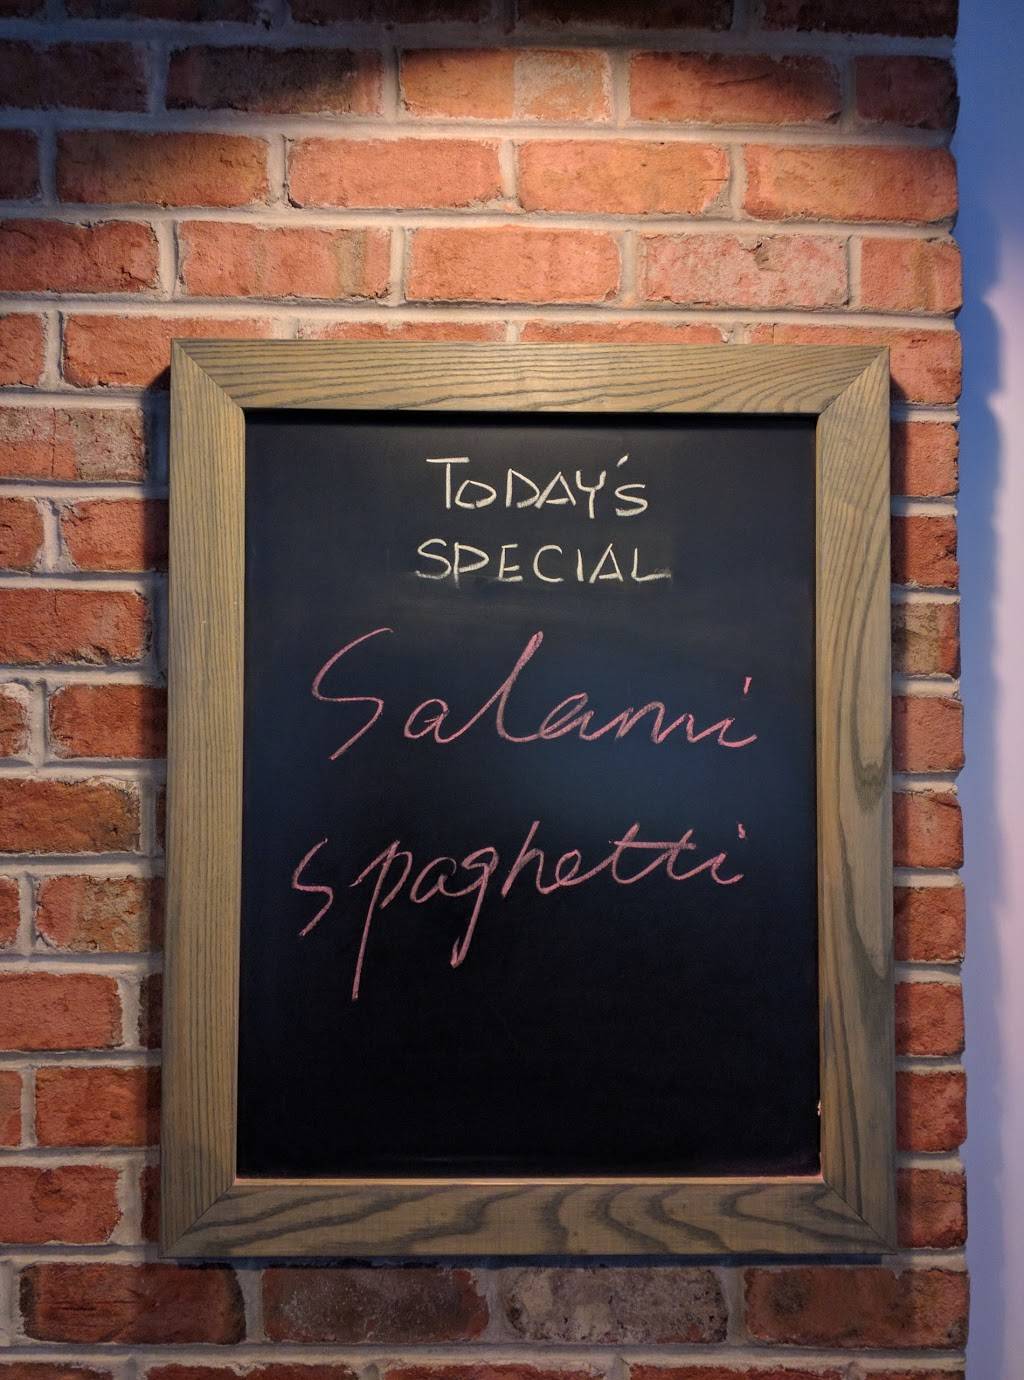 TODAY'S
SPECIAL
Salami
spaghetti